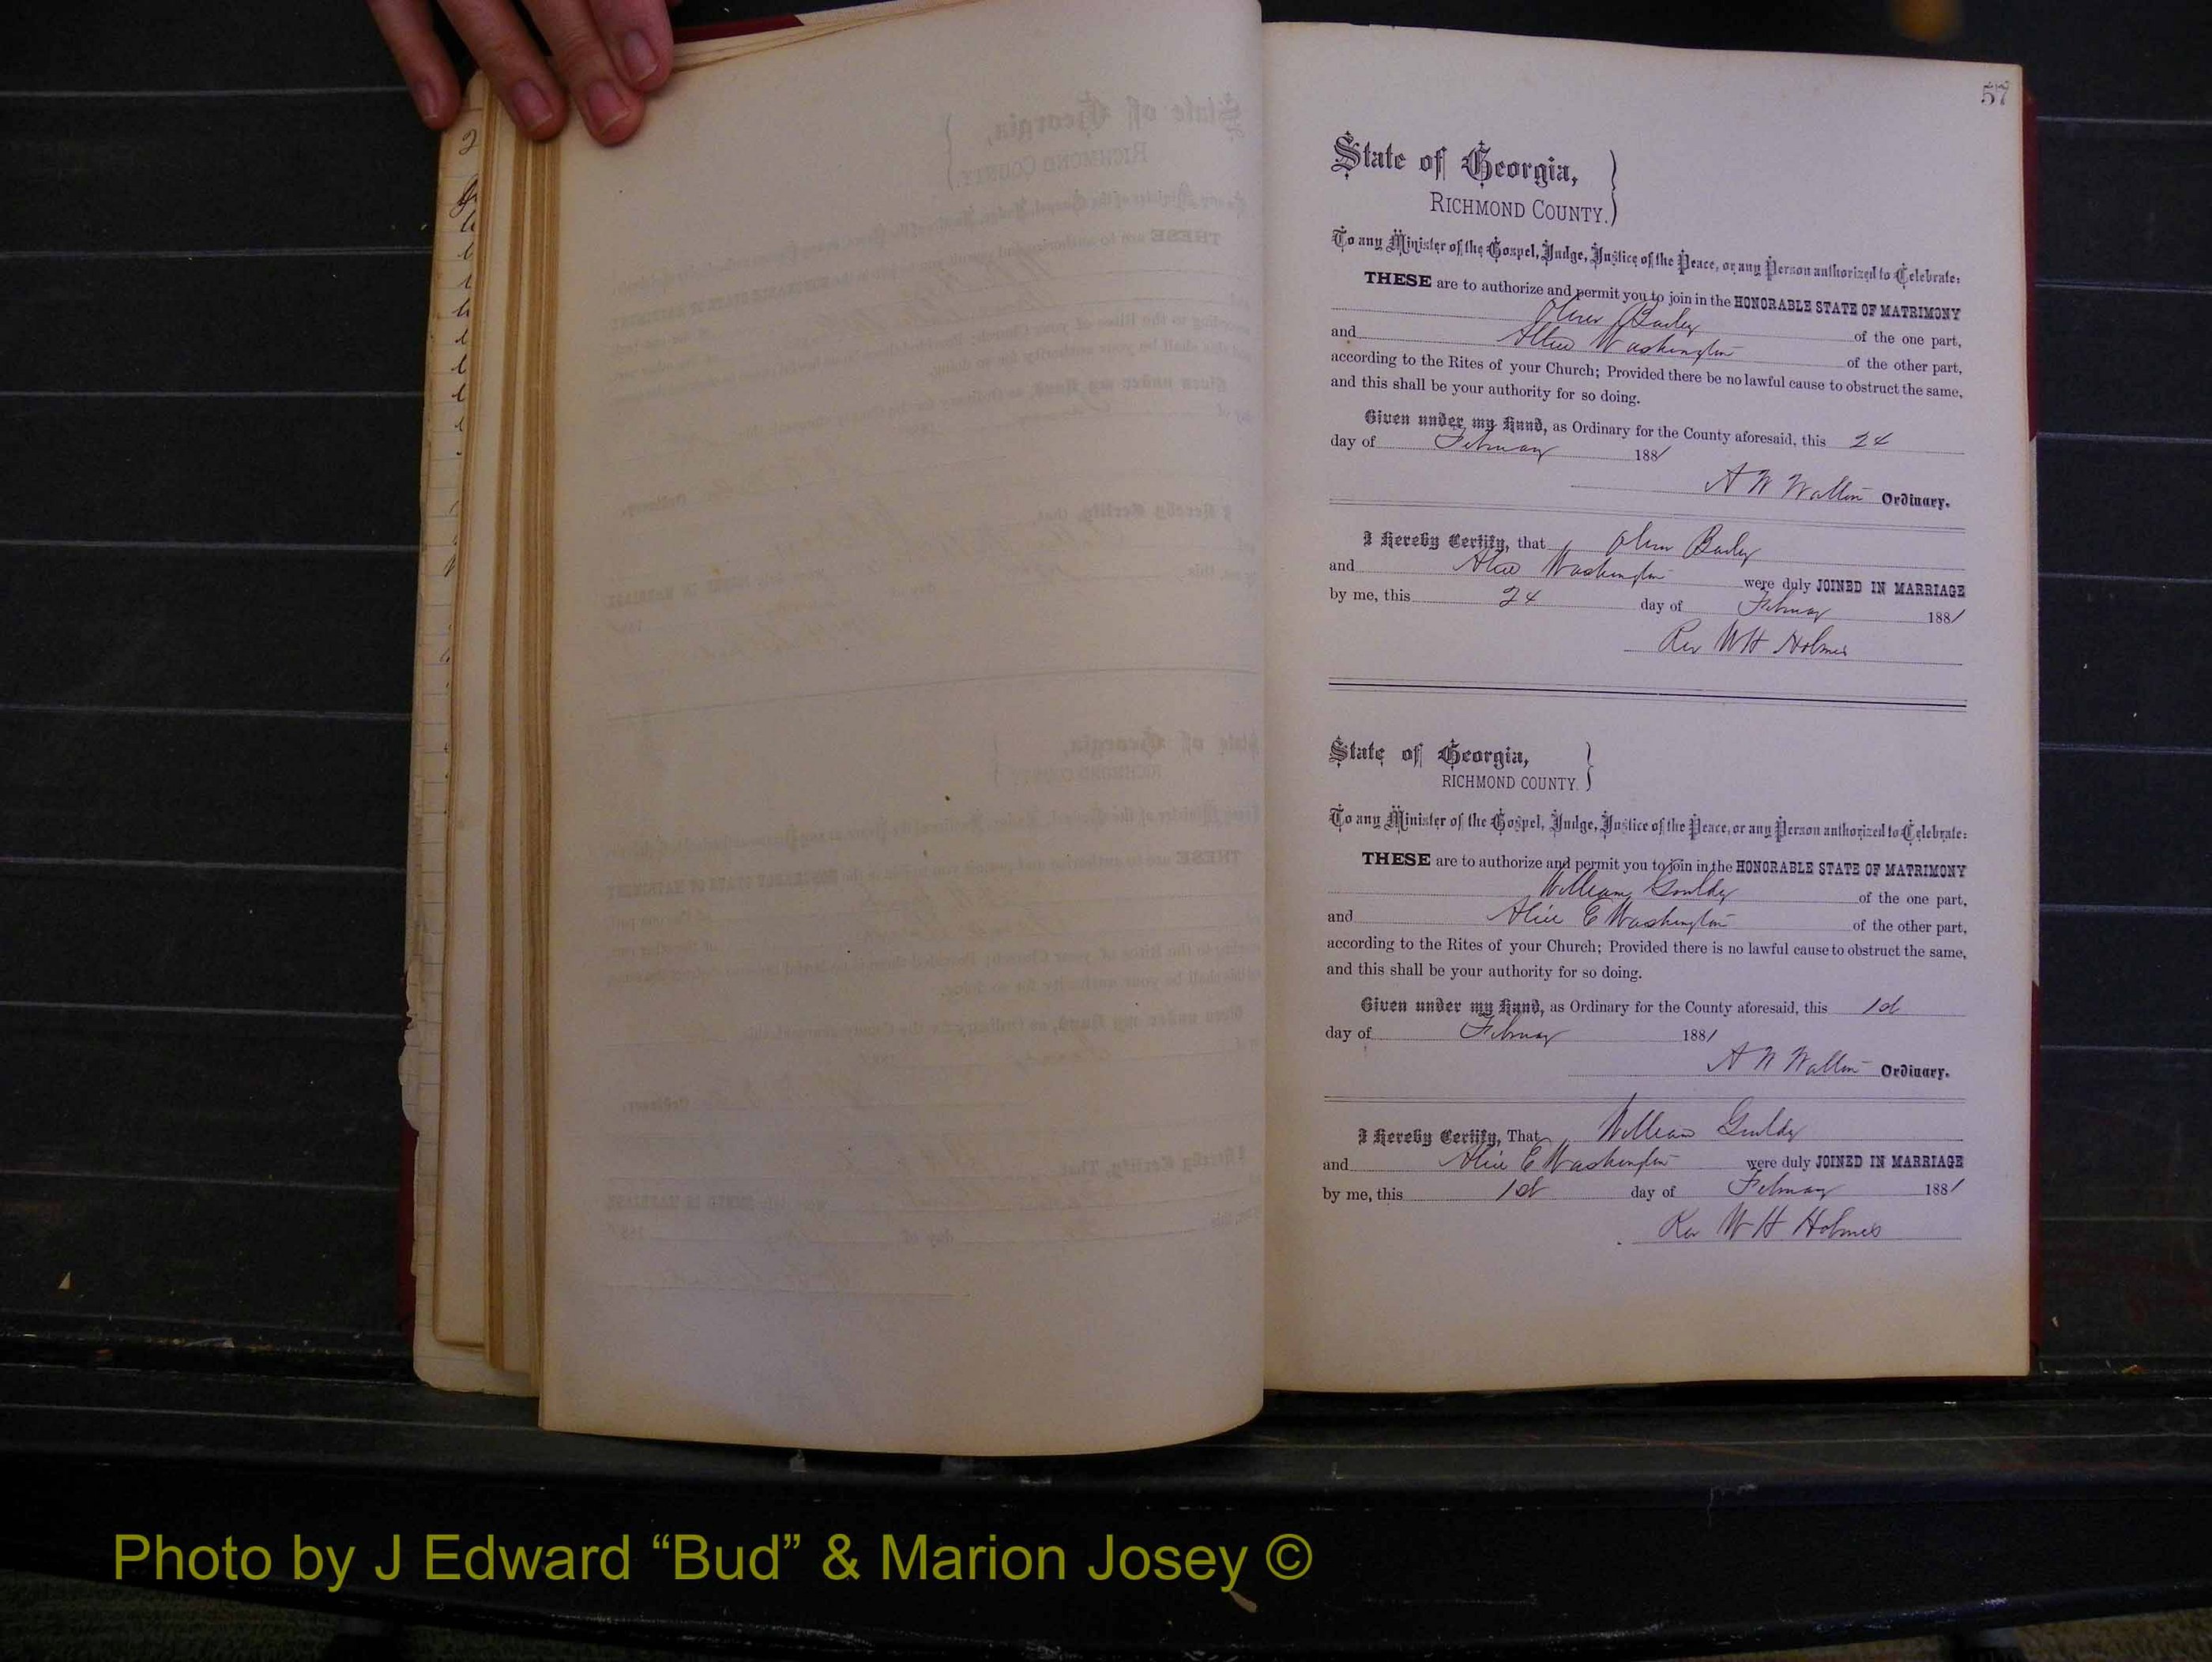 57
State of Georgia,
RICHMOND COUNTY.
To any Minister of the Gospel, Judge, Justice of the Peace, or any Person authorized to Celebrate:
THESE are to authorize and permit you to join in the HONORABLE STATE OF MATRIMONY
Oliver Bailey of the one part,
and Alice Washington of the other part,
according to the Rites of your Church; Provided there be no lawful cause to obstruct the same,
and this shall be your authority for so doing.
Given under my Hand, as Ordinary for the County aforesaid, this 24
day of February 1881
A W Walton Ordinary.
I Hereby Certify, that Oliver Bailey
and Alice Washington were duly JOINED IN MARRIAGE
by me, this 24 day of February 1881
Rev W H Holmes
State of Georgia,
RICHMOND COUNTY.
To any Minister of the Gospel, Judge, Justice of the Peace, or any Person authorized to Celebrate:
THESE are to authorize and permit you to join in the HONORABLE STATE OF MATRIMONY
William Gouldy of the one part,
and Alice E Washington of the other part,
according to the Rites of your Church; Provided there is no lawful cause to obstruct the same,
and this shall be your authority for so doing.
Given under my Hand, as Ordinary for the County aforesaid, this 1st
day of February 1881
A W Walton Ordinary.
I Hereby Certify, That William Gouldy
and Alice E Washington were duly JOINED IN MARRIAGE
by me, this 1st day of February 1881
Rev W H Holmes
Photo by J Edward “Bud” & Marion Josey ©